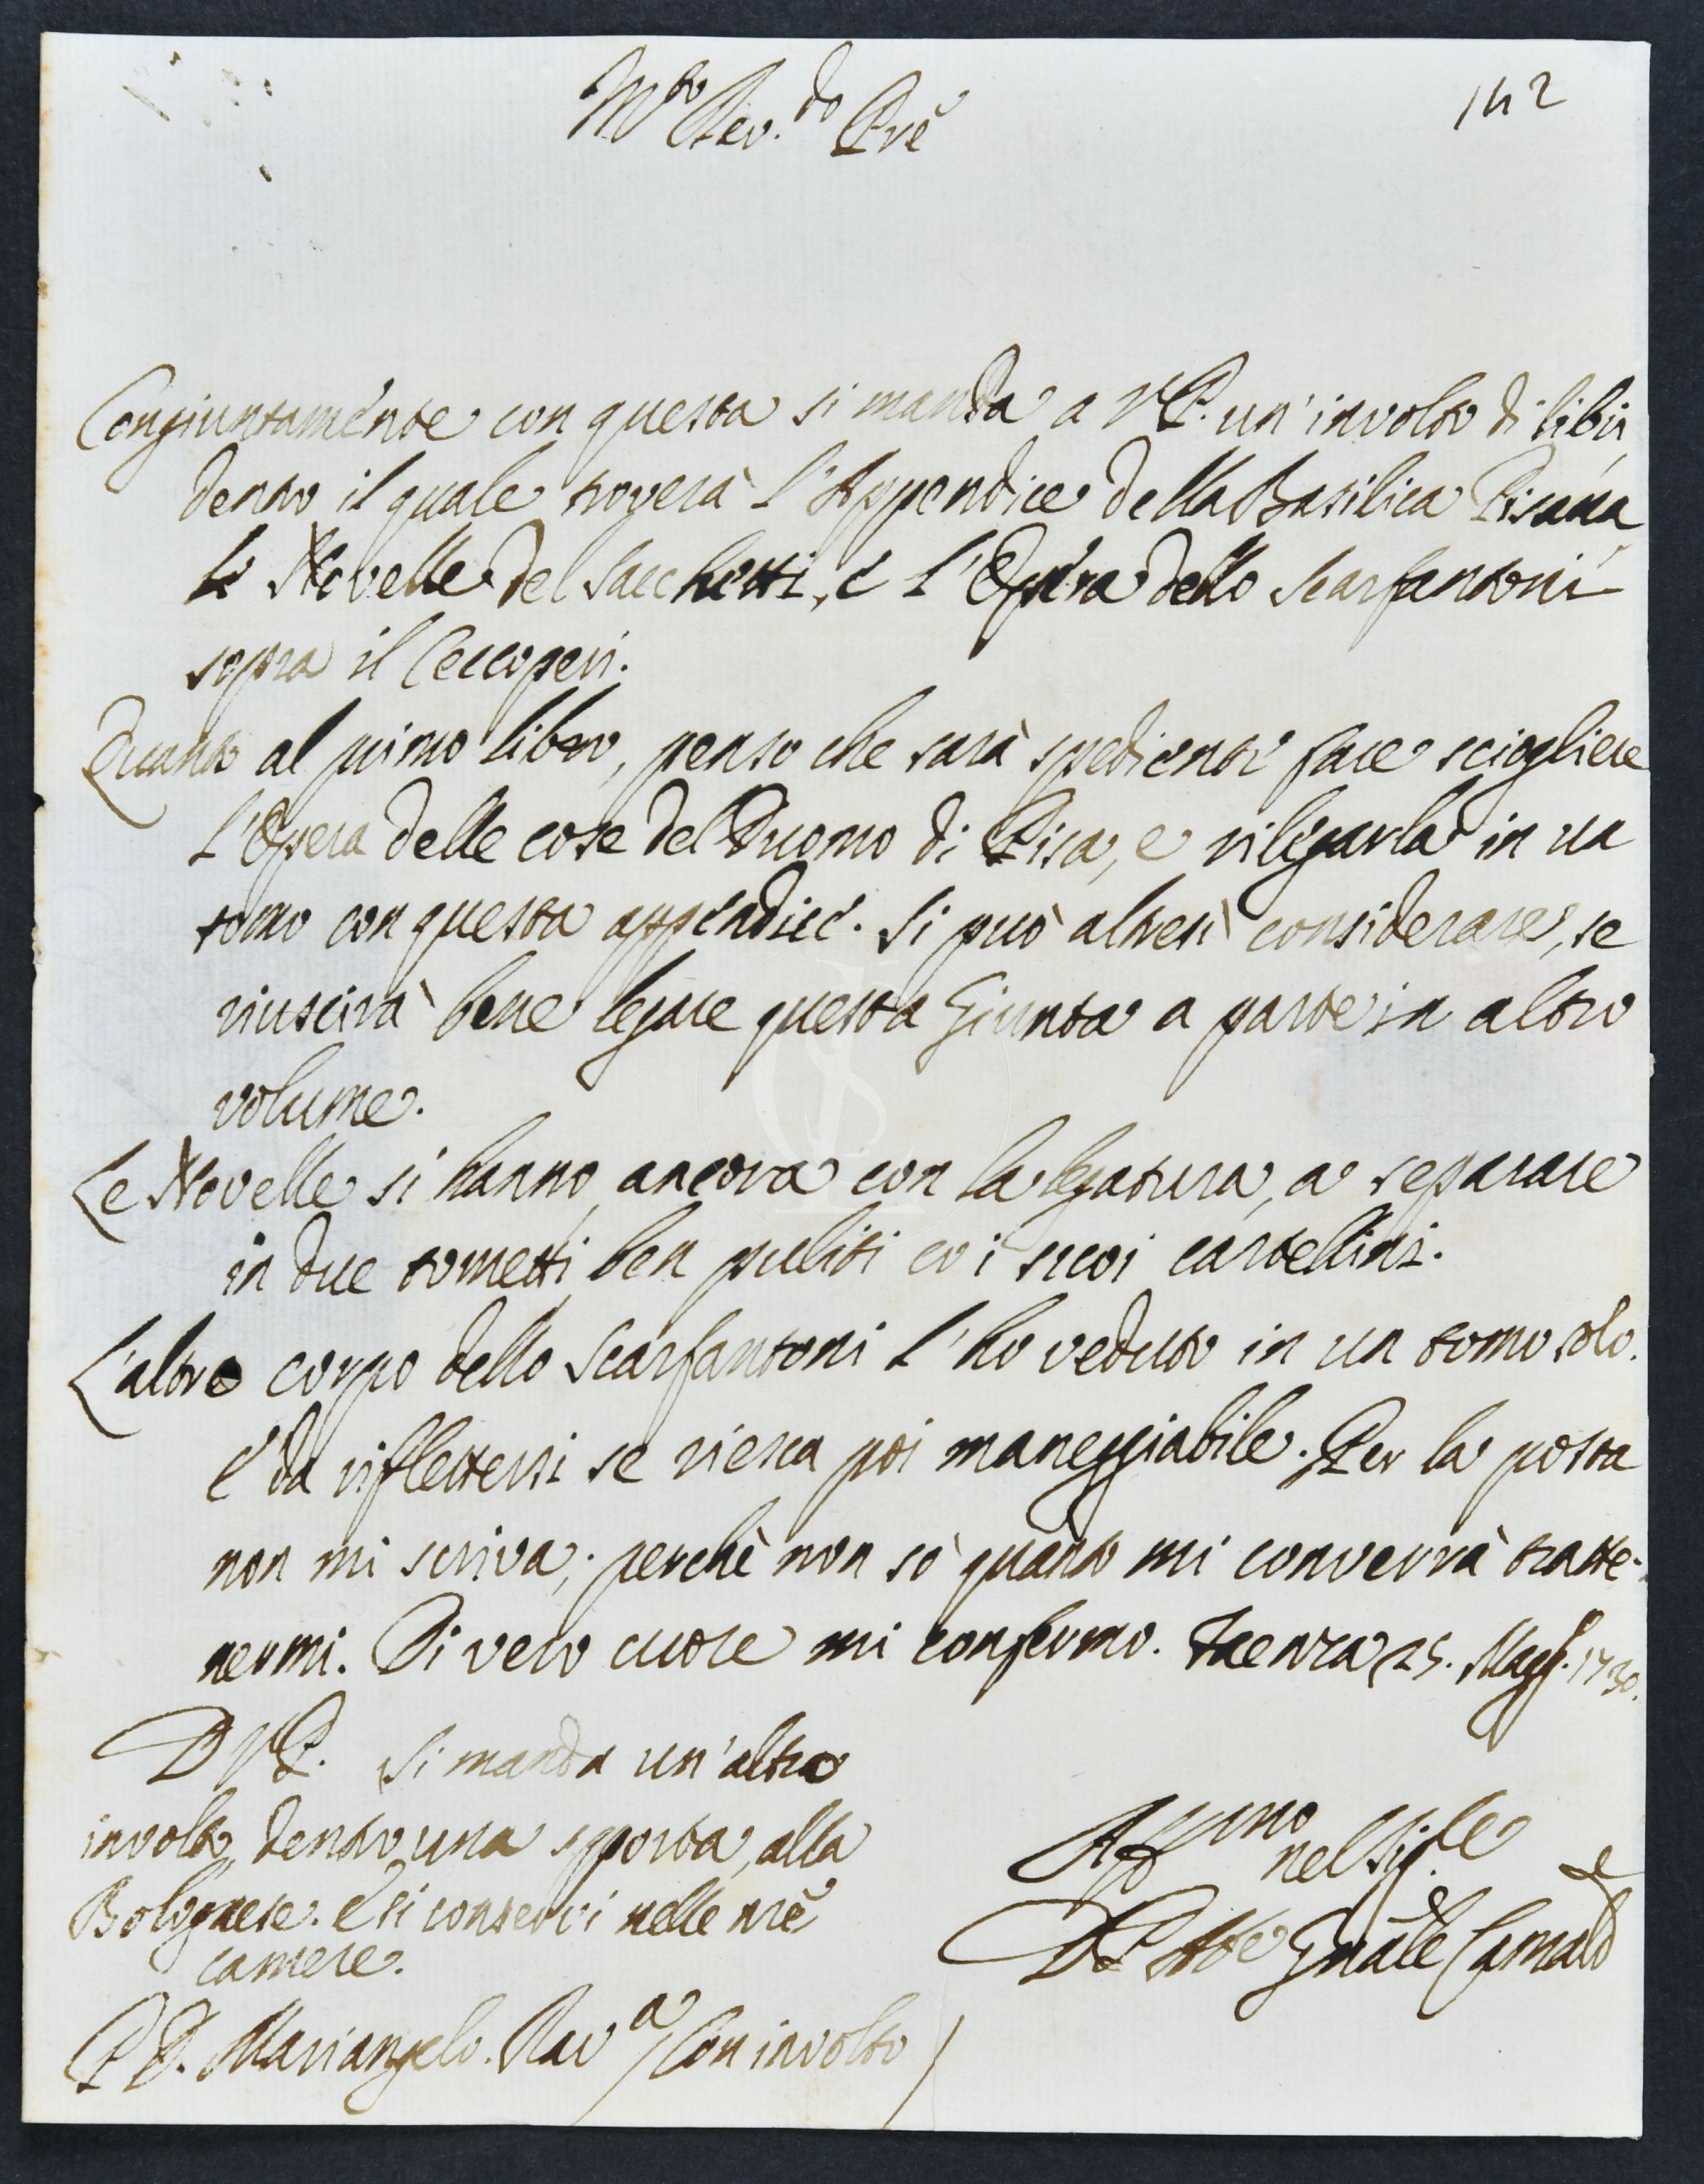 142
M.to Rev.do Pre
Congiuntamente con questa si manda a V.P. un' involto di libri,
dentro il quale troverà l'Appendice della Basilica Pisana
le Novelle del Sacchetti, e l'Opera dello Scarfantoni
sopra il Ceccoperi.
Quanto al primo libro, penso che sarà spediente fare sciogliere
l'Opera delle cose del Duomo di Pisa, e rilegarla in un
tomo con questa appendice. Si può altresì considerare, se
riuscirà bene legare questa Giunta a parte in altro
volume.
Le Novelle si hanno ancora con la legatura, a separare
in due tometti ben puliti coi suoi cartellini.
L'altro corpo dello Scarfantoni l'ho veduto in un tomo solo.
è da riflettersi se riesca poi maneggiabile. Per la posta
non mi scriva; perchè non sò quanto mi converrà tratte-
nermi. Di vero cuore mi confermo. Faenza 25. Magg. 1730.
D V.P. Si manda un'altro
involto, dentro una sporta, alla
Bolognese. e si conservi nelle nrē
camere.
Aff.mo nel Sig.re
D P Abe Gnāle Camald
P D. Mariangelo. Rav.a / Con involto /